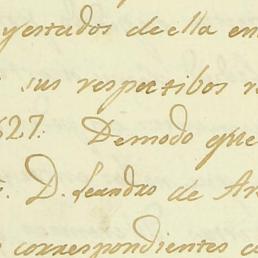 yestados de ella en
sus respectibos
627. Demodo que
D. Leandro de Ar
correspondientes